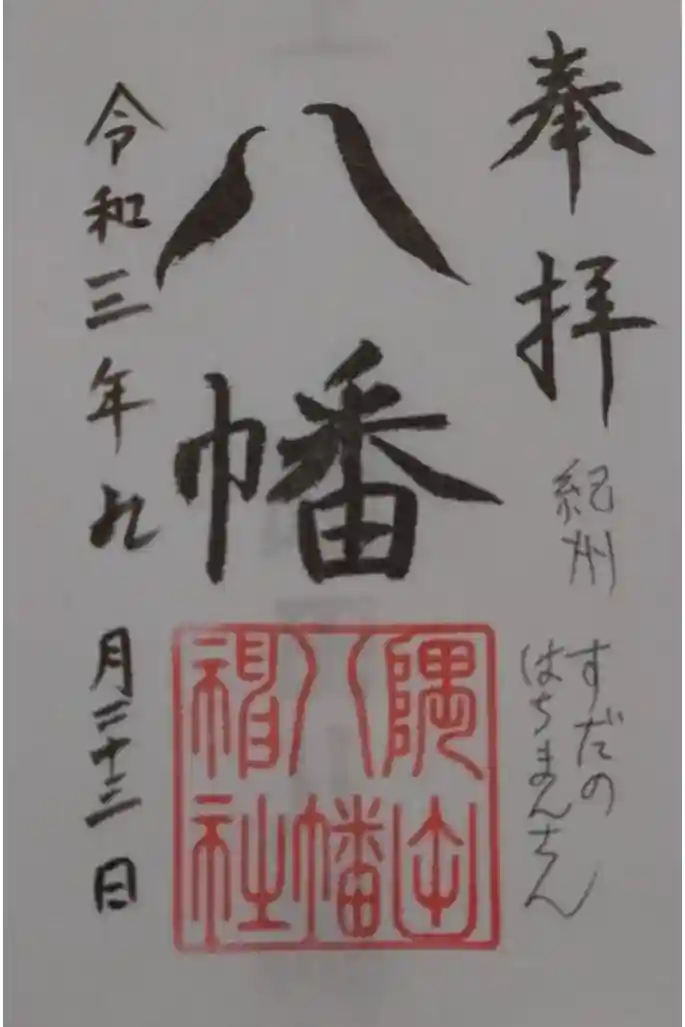 奉拝
紀州
すだの
はちまんさん
八幡
隅田
八幡
神社
令和三年九月二十三日